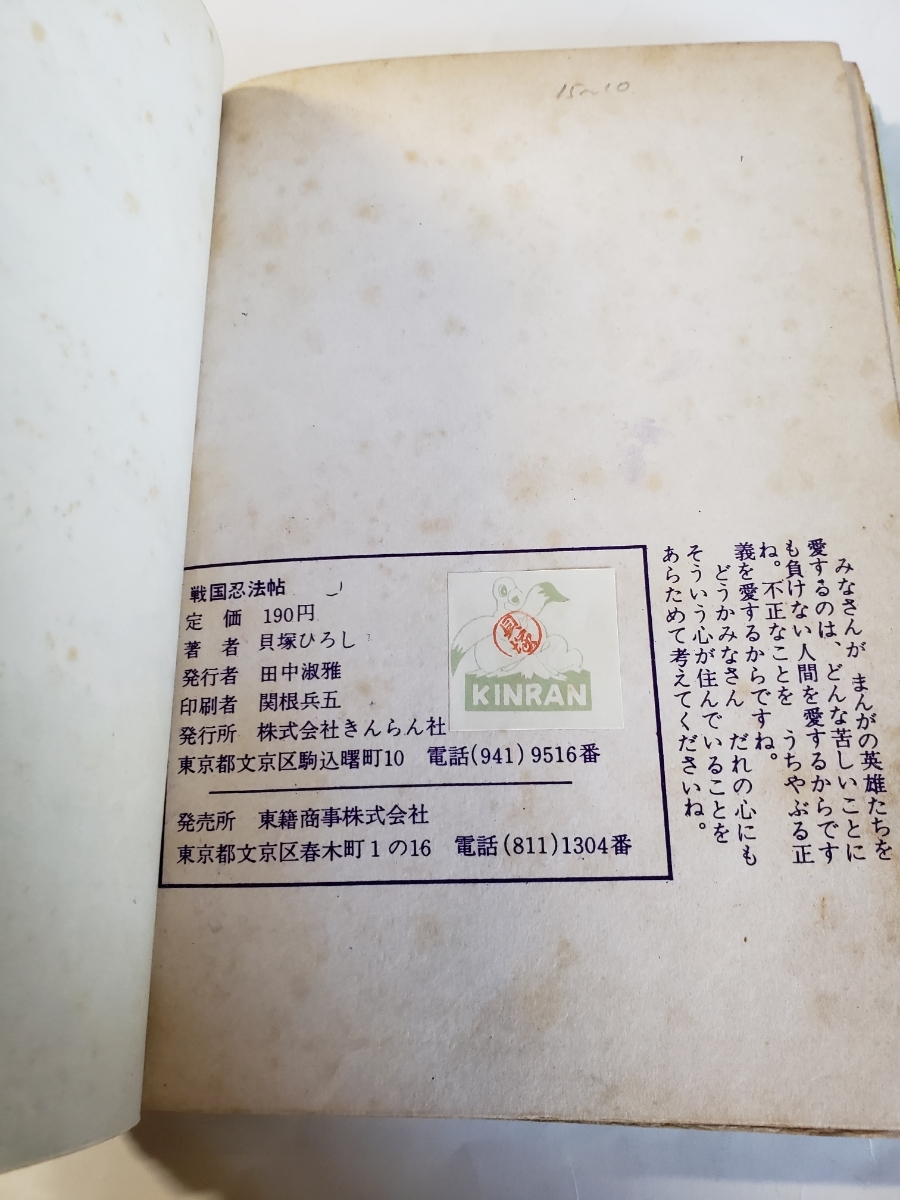 15~10
みなさんが まんがの英雄たちを
愛するのは、どんな苦しいことに
も負けない人間を愛するからです
ね。不正なことを うちやぶる正
義を愛するからですね。
どうかみなさん だれの心にも
そういう心が住んでいることを
あらためて考えてくださいね。
戦国忍法帖
定 価 190円
著 者 貝塚ひろし
発行者 田中淑雅
印刷者 関根兵五
発行所 株式会社きんらん社
東京都文京区駒込曙町10 電話(941)9516番
発売所 東籍商事株式会社
東京都文京区春木町1の16 電話(811)1304番
貝塚
KINRAN